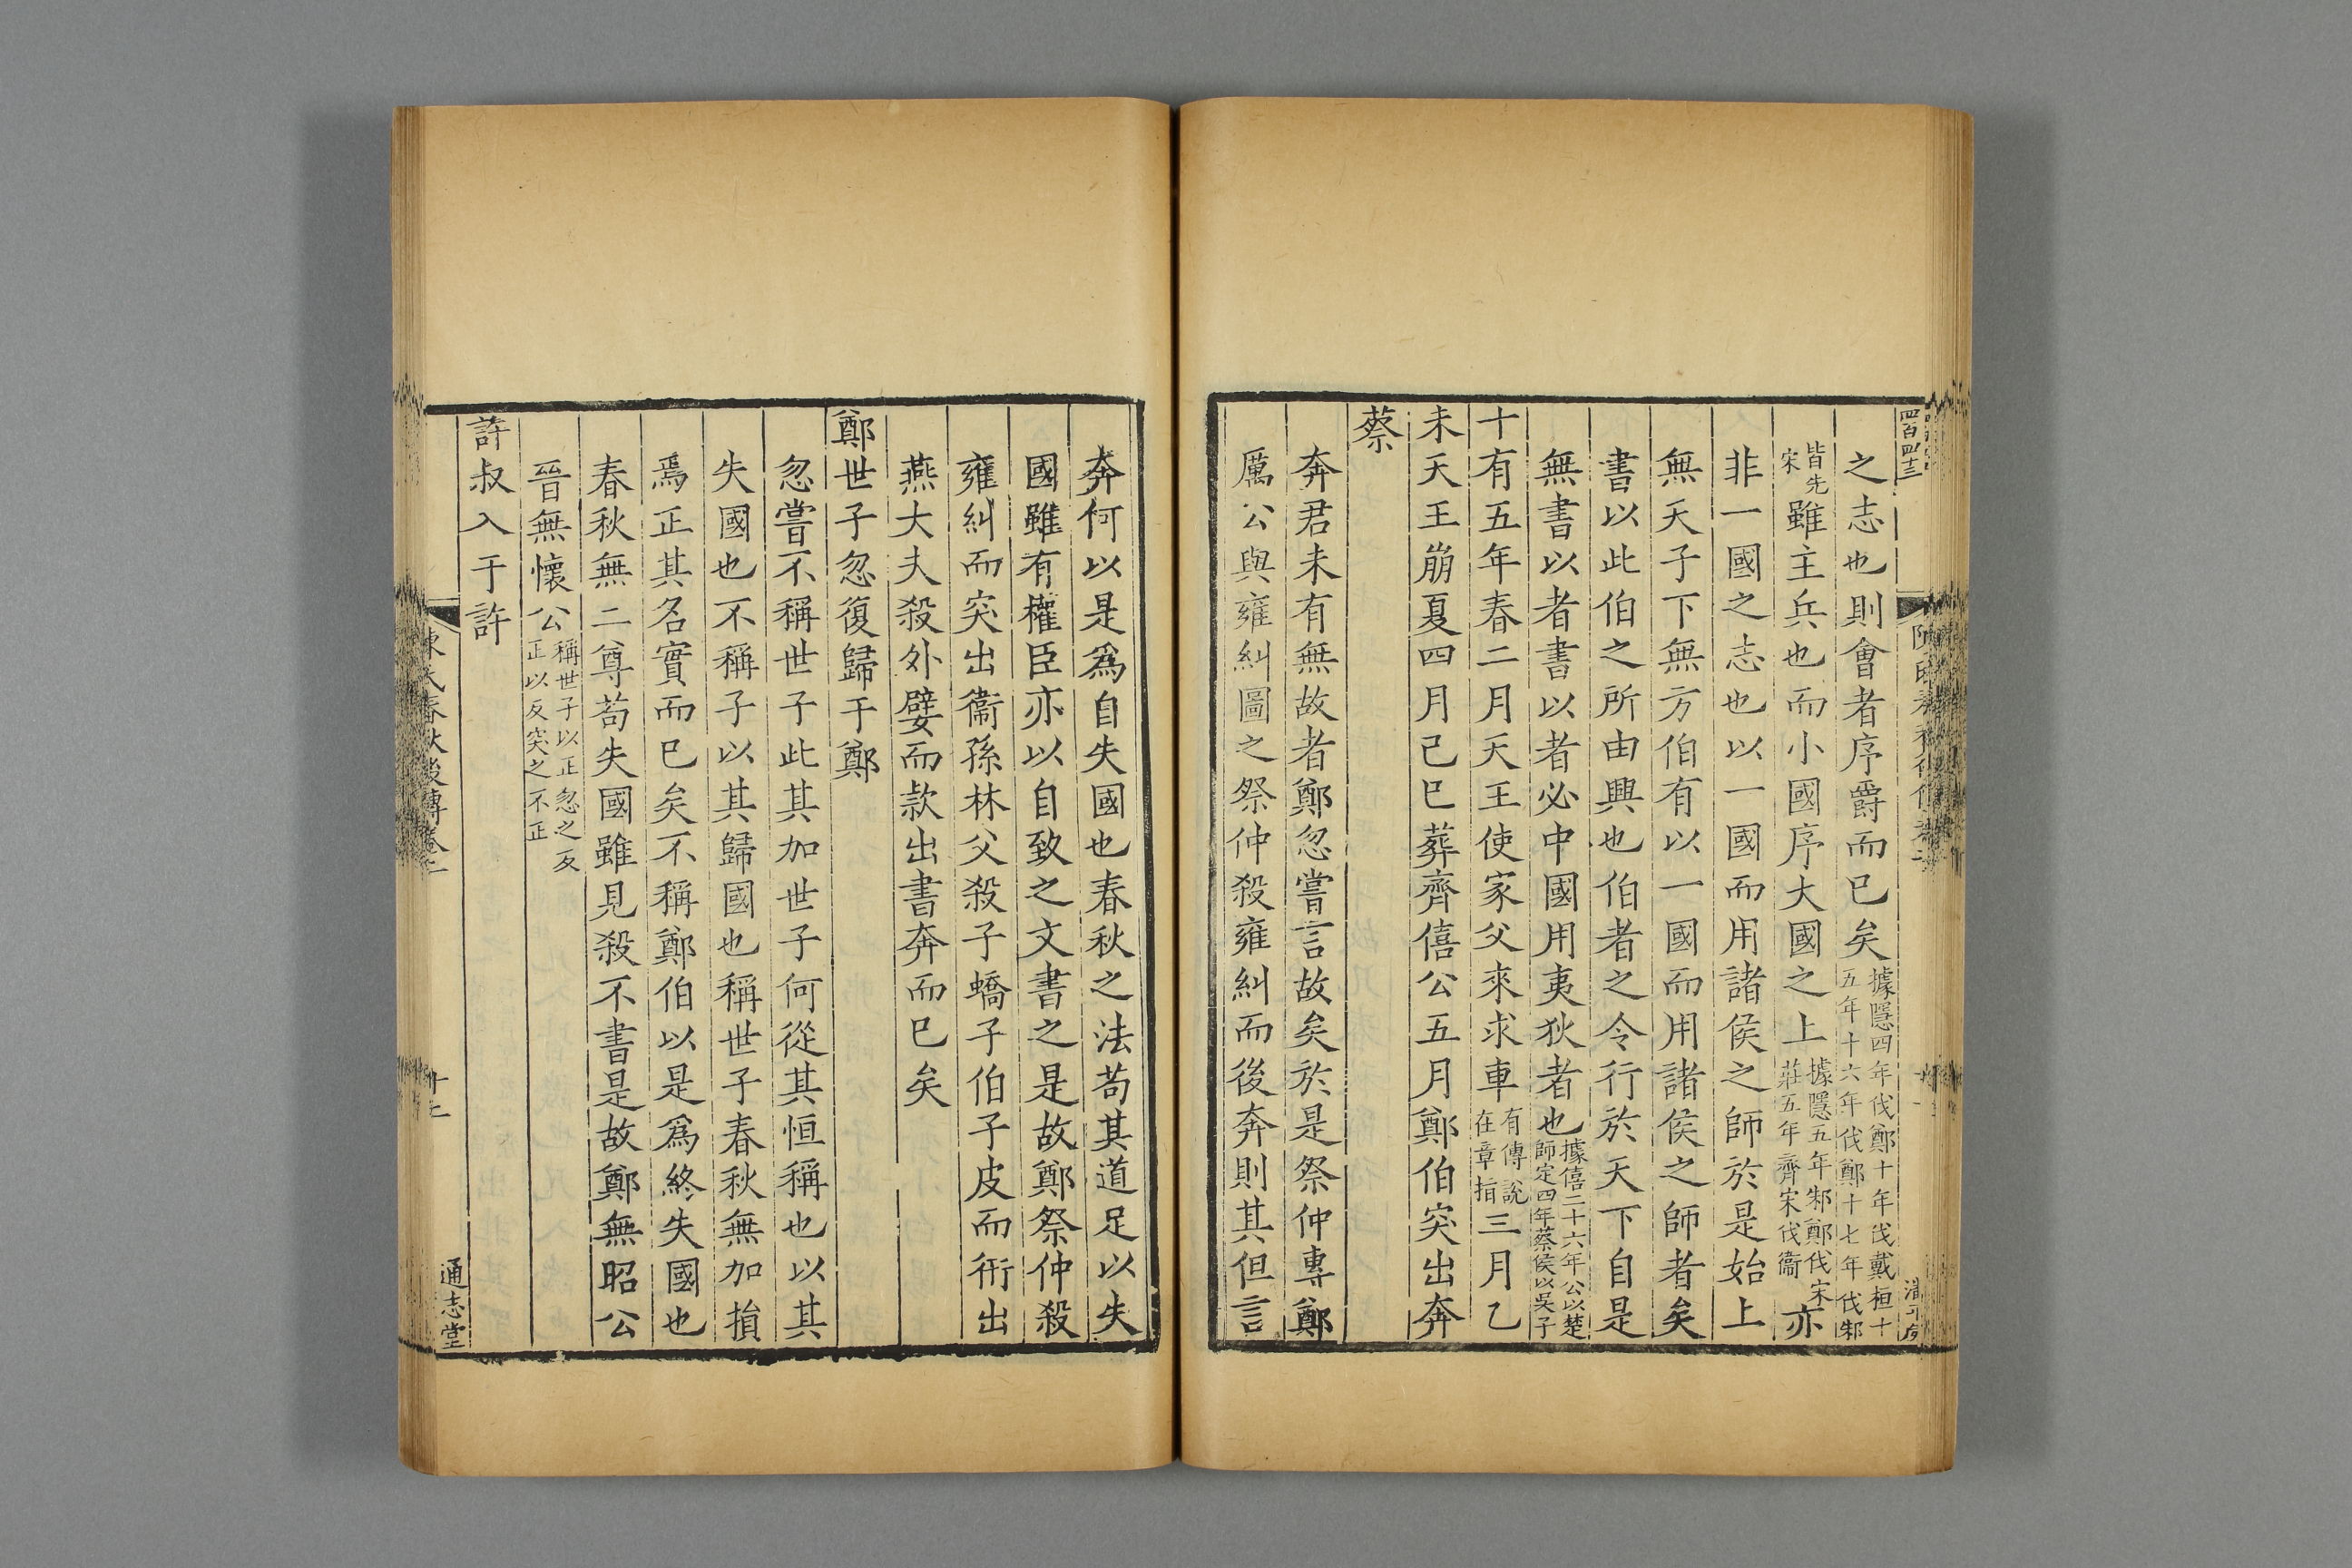 四百四十三
之志也則會者序爵而已矣據隱四年伐鄭十年伐戴桓十五年十六年伐鄭十七年伐邾
皆先宋雖主兵也而小國序大國之上據隱五年邾鄭伐宋莊五年齊宋伐衞亦
非一國之志也以一國而用諸侯之師於是始上
無天子下無方伯有以一國而用諸侯之師者矣
書以此伯之所由興也伯者之令行於天下自是
無書以者書以者必中國用夷狄者也據僖二十六年公以楚師定四年蔡侯以吳子
十有五年春二月天王使家父來求車有傳說在章指三月乙
未天王崩夏四月己巳葬齊僖公五月鄭伯突出奔
蔡
奔君未有無故者鄭忽嘗言故矣於是祭仲專鄭
厲公與雍糾圖之祭仲殺雍糾而後奔則其但言
奔何以是爲自失國也春秋之法苟其道足以失
國雖有權臣亦以自致之文書之是故鄭祭仲殺
雍糾而突出衞孫林父殺子蟜子伯子皮而衎出
燕大夫殺外嬖而款出書奔而已矣
鄭世子忽復歸于鄭
忽嘗不稱世子此其加世子何從其恒稱也以其
失國也不稱子以其歸國也稱世子春秋無加損
焉正其名實而已矣不稱鄭伯以是爲終失國也
春秋無二尊苟失國雖見殺不書是故鄭無昭公
晉無懷公稱世子以正忽之反正以反突之不正
許叔入于許
陳氏春秋後傳卷二
通志堂